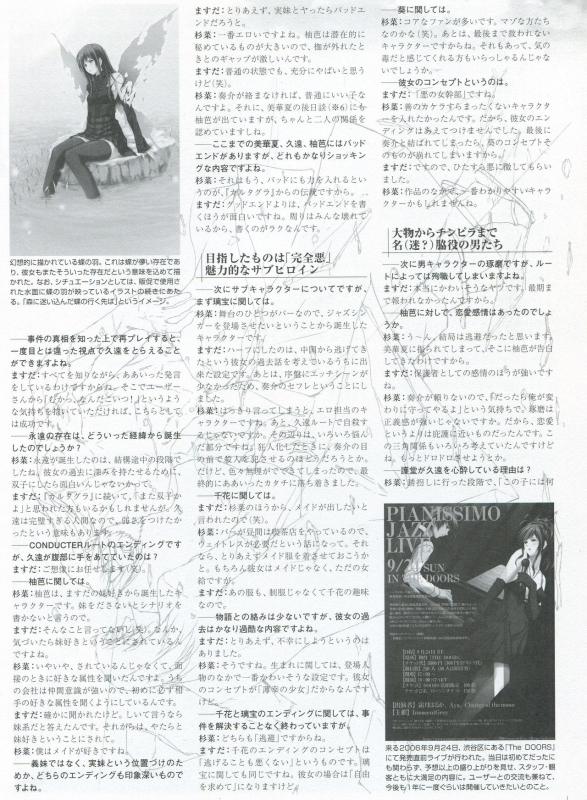 幻想的に描かれている蝶の羽。これは蝶が儚い存在であ
り、彼女もまたそういった存在だという意味を込めて描
かれた。なお、シチュエーションとしては、販促で使用さ
れた水面に蝶の羽が映っているイラストの続きにあた
る。「森に迷い込んだ蝶の行く先は」というイメージ。
――事件の真相を知った上で再プレイすると、
一度目とは違った視点で久遠をとらえること
ができますよね。
ますだ:すべてを知りながら、ああいった発言
をしているわけですからね。そこでユーザー
さんから「むかつ、なんだこいつ!」というよう
な気持ちを抱いていただければ、こちらとして
は成功です。
――永遠の存在は、どういった経緯から誕生
したのでしょうか?
杉菜:永遠が誕生したのは、結構途中の段階で
したね。彼女の過去に深みを持たせるために、
双子にしたら面白いんじゃないかって。
ますだ:『カルタグラ』に続いて、「また双子か
よ」と思われた方もいるかもしれませんが。久遠
は完璧すぎる人間なので、弱さをつけたか
ったという意味もあります。
――CONDUCTERルートのエンディングです
が、久遠が腹部に手をあてていたのは?
ますだ:ご想像にお任せします(笑)。
――柚芭に関しては。
杉菜:柚芭は、ますだの妹好きから誕生したキャ
ラクターです。妹をださないとシナリオを
書かないと言うので。
ますだ:そんなこと言ってない(笑)。なんか、
気づいたら妹好きということにされているんで
すよね。
杉菜:いやいや、されているんじゃなくて。面
接のときに好きな属性を聞いたんですよ。うち
の会社は仲間意識が強いので、初めに必ず相
手の好きな属性を聞くようにしているんです。
ますだ:確かに聞かれたけど。しいて言うなら
妹系だと答えたんです。それからは、やたらと
妹好きということにされて。
杉菜:僕はメイドが好きですね。
――義妹ではなく、実妹という位置づけのた
めか、どちらのエンディングも印象深いもので
すよね。
ますだ:とりあえず、実妹とヤったらバッドエ
ンドだろうと。
杉菜:一番エロいですよね。柚芭は潜在的に
秘めているものが大きいので、箍が外れたと
きとのギャップが激しいんです。
ますだ:普通の状態でも、充分にやばいと思う
けど(笑)。
杉菜:奏介が絡まなければ、普通にいい子な
んですよ。それに、美華夏の後日談(※6)にも
柚芭が出ていますが、ちゃんと二人の関係を
認めていますしね。
――ここまでの美華夏、久遠、柚芭にはバッド
エンドがありますが、どれもかなりショッキン
グな内容ですよね。
杉菜:それはもう、バッドにも力を入れるとい
うのが、『カルタグラ』からの伝統ですから。
ますだ:グッドエンドよりは、バッドエンドを書
くほうが面白いですね。周りはみんな壊れてい
るから、書くのがラクなんです。
目指したものは「完全悪」
魅力的なサブヒロイン
――次にサブキャラクターについてですが、
まず璃宝に関しては。
杉菜:舞台のひとつがバーなので、ジャズシン
ガーを登場させたいということから誕生した
キャラクターです。
ますだ:ハーフにしたのは、中国から逃げてき
たという彼女の過去話を考えているうちに出
来た設定です。あとは、序盤にエッチシーンが
少なかったため、奏介のセフレということにし
ました。
杉菜:はっきり言ってしまうと、エロ担当のキャ
ラクターですね。あと、久遠ルートで自殺す
るじゃないですか。その辺りは、いろいろ悩ん
だ部分ですね。狂人化したときに、奏介の目の
前で殺人を犯させるのはどうだろうとか。
だけど、色々無理がでてきてしまったので、最
終的にああいったカタチに落ち着きました。
――千花に関しては。
ますだ:杉菜のほうから、メイドが出したいと
言われたので(笑)。
杉菜:バーが昼間は喫茶店をやっているので、
ウェイトレスが必要だという話になって。それ
なら、とりあえずメイド服を着させておこうか
と。もちろん彼女はメイドじゃなく、ただの女
給ですが。
ますだ:あの服も、制服じゃなくて千花の趣味
なので。
――物語との絡みは少ないですが、彼女の過
去はかなり過酷な内容ですよね。
ますだ:とりあえず、不幸にしようというのは
ありました。
杉菜:そうですね。生まれに関しては、登場人
物のなかで一番かわいそうな設定です。彼女
のコンセプトが「薄幸の少女」だからなんです
けど。
――千花と璃宝のエンディングに関しては、事
件を解決することなく終わっていますが。
杉菜:どちらも「逃避」ですからね。
ますだ:千花のエンディングのコンセプトは
「逃げることも悪くない」というものです。璃
宝に関しても同じですね。彼女の場合は「自由
を求めて」になりますけど。
――葵に関しては。
杉菜:コアなファンが多いです。マゾな方たち
なのかな(笑)。あとは、最後まで救われない
キャラクターですからね。それもあって、気の
毒だと感じてくれる方もいらっしゃるんじゃな
いでしょうか。
――彼女のコンセプトというのは。
ますだ:「悪の女幹部」ですね。
杉菜:善のカケラすらまったくないキャラクタ
ーを入れたかったんです。だから、彼女のエン
ディングはあえてつけませんでした。最後に
奏介と結ばれてしまったら、葵のコンセプトそ
のものが崩れてしまいますから。
ますだ:ですので、ひたすら悪に徹してもらい
ました。
杉菜:作品のなかで、一番わかりやすいキャラ
クターかもしれませんね。
大物からチンピラまで
名(迷?)脇役の男たち
――次に男キャラクターの琢磨ですが、ルート
によっては殉職してしまいますよね。
ますだ:本当にかわいそうなヤツです。最期ま
で報われなかったんですから。
――柚芭に対して、恋愛感情はあったのでしょ
うか。
杉菜:う~ん、結局は逃避だったと思います。
美華夏に振られてしまって、そこに柚芭が告白
してきたわけですから。
ますだ:保護者としての感情のほうが強いです
ね。
杉菜:奏介が頼りないので、「だったら俺が変
わりに守ってやるよ」という気持ちで。琢磨は
正義感が強いじゃないですか。だから、恋愛と
いうよりは庇護に近いものだったんです。この
三角関係もいろいろ考えていたんですけど
ね。もっとドロドロさせようとか。
――護堂が久遠を心酔している理由は?
杉菜:誘拐しに行った段階で、「この子には何
PIANISSIMO
JAZZ
LIVE
9/24 SUN
IN THE DOORS
来る2006年9月24日、渋谷区にある「The DOORS」
にて発売直前ライブが行われた。当日は初めてだったに
も関わらず、予想以上の盛り上がりを見せ、スタッフ・観
客ともに大満足な内容に。ユーザーとの交流も兼ねて、
今後も1年に一度ぐらいは開催していきたいとのこと。